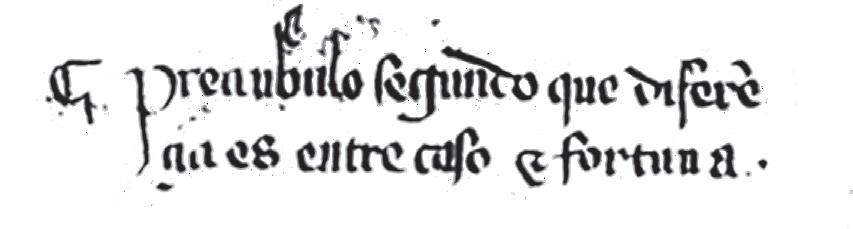 ¶ Preanbulo segundo que diferẽ
çia es entre caso & fortuna .